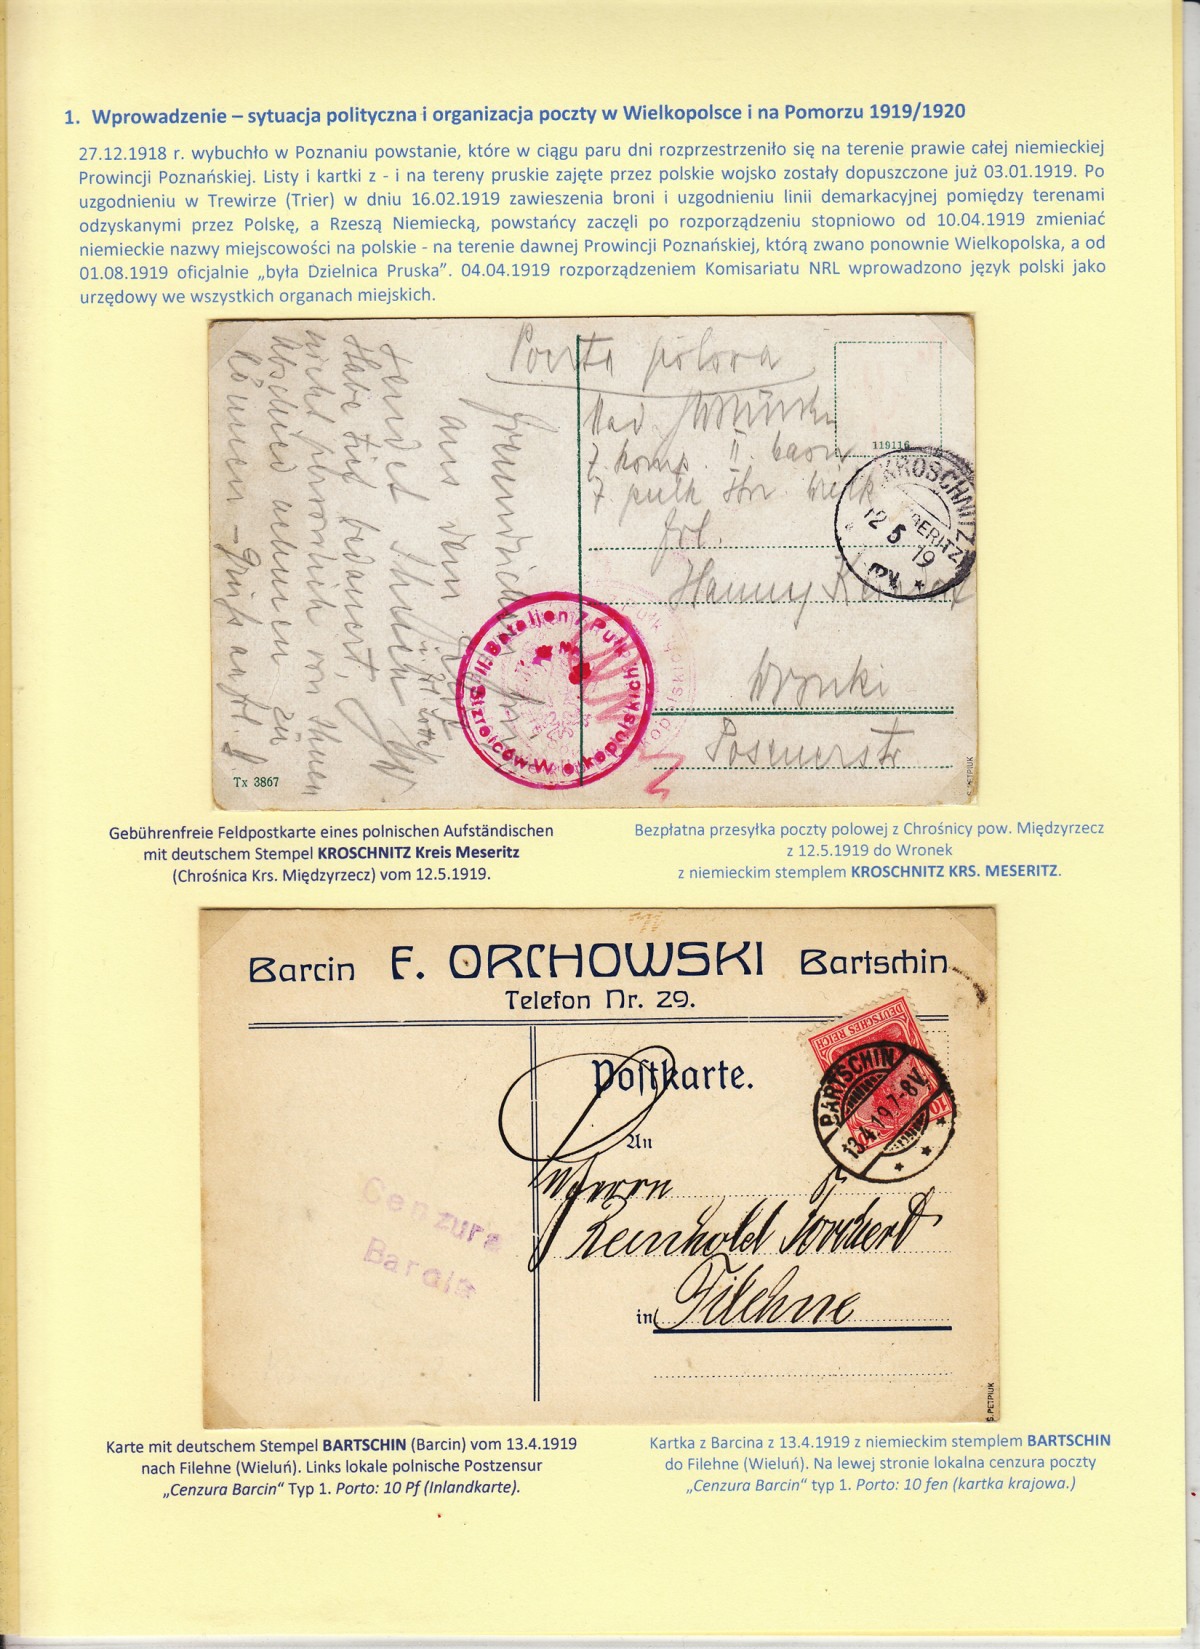 1. Wprowadzenie – sytuacja polityczna i organizacja poczty w Wielkopolsce i na Pomorzu 1919/1920
27.12.1918 r. wybuchło w Poznaniu powstanie, które w ciągu paru dni rozprzestrzeniło się na terenie prawie całej niemieckiej
Prowincji Poznańskiej. Listy i kartki z - i na tereny pruskie zajęte przez polskie wojsko zostały dopuszczone już 03.01.1919. Po
uzgodnieniu w Trewirze (Trier) w dniu 16.02.1919 zawieszenia broni i uzgodnieniu linii demarkacyjnej pomiędzy terenami
odzyskanymi przez Polskę, a Rzeszą Niemiecką, powstańcy zaczęli po rozporządzeniu stopniowo od 10.04.1919 zmieniać
niemieckie nazwy miejscowości na polskie - na terenie dawnej Prowincji Poznańskiej, którą zwano ponownie Wielkopolska, a od
01.08.1919 oficjalnie „była Dzielnica Pruska”. 04.04.1919 rozporządzeniem Komisariatu NRL wprowadzono język polski jako
urzędowy we wszystkich organach miejskich.
Poczta polowa
7. komp. II. baon
7. pułk Str. Wielk
Frl.
Hanny
Wronki
Posenerstr
aus dem
sendet Ihnen
Habe bedauert,
nicht persönlich von Ihnen
Abschied nehmen zu
können – Gruß an Frl.
119116
KROSCHNITZ
MESERITZ
12 5 19
II. Bataljon 7 Pułk
Strzelców Wielkopolskich
Tx 3867
S. PETRIUK
Gebührenfreie Feldpostkarte eines polnischen Aufständischen
mit deutschem Stempel KROSCHNITZ Kreis Meseritz
(Chrośnica Krs. Międzyrzecz) vom 12.5.1919.
Bezpłatna przesyłka poczty polowej z Chrośnicy pow. Międzyrzecz
z 12.5.1919 do Wronek
z niemieckim stemplem KROSCHNITZ KRS. MESERITZ.
Barcin F. ORCHOWSKI Bartschin
Telefon Nr. 29.
DEUTSCHES REICH
10
BARTSCHIN
13.4.19.7-8V.
Postkarte.
An
Herrn
Reinhold
in Filehne
Cenzura
Barcin
S. PETRIUK
Karte mit deutschem Stempel BARTSCHIN (Barcin) vom 13.4.1919
nach Filehne (Wieluń). Links lokale polnische Postzensur
„Cenzura Barcin“ Typ 1. Porto: 10 Pf (Inlandkarte).
Kartka z Barcina z 13.4.1919 z niemieckim stemplem BARTSCHIN
do Filehne (Wieluń). Na lewej stronie lokalna cenzura poczty
„Cenzura Barcin“ typ 1. Porto: 10 fen (kartka krajowa.)